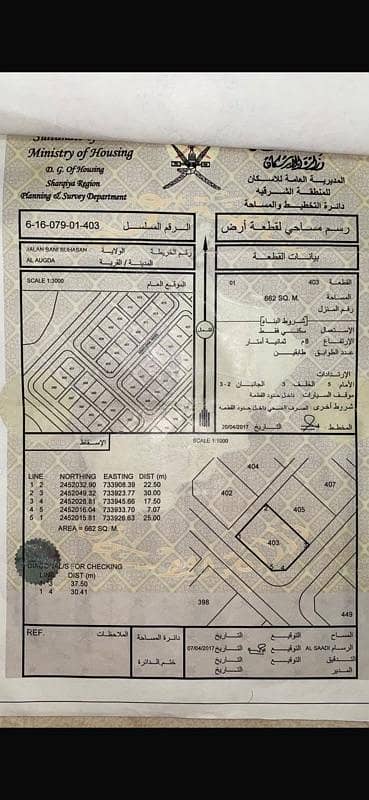 Ministry of Housing
D. G. Of Housing
Sharqiya Region
Planning & Survey Department
وزارة الإسكان
المديرية العامة للاسكان
للمنطقة الشرقيه
دائرة التخطيط والمساحة
6-16-079-01-403 الرقم المسلسل
رسم مساحي لقطعة أرض
JALAN BANI BUHASAN الولاية
رقم الخريطة
AL AUGDA المدينة / القرية
بيانات القطعة
SCALE 1:3000
الموقع العام
القطعة 403 01
المساحة 662 SQ. M.
رقم المنزل
شروط البناء
الاستعمال سكني فقط
الارتفاع 8م ثمانية أمتار
عدد الطوابق طابقين
الارتدادات
الأمام 5 الخلف 3 الجانبان 2 - 3
موقف السيارات داخل حدود القطعة
شروط أخرى الصرف الصحي داخل حدود القطعة
المخطط التاريخ 20/04/2017
الشمال
الإسقاط
SCALE 1:1000
LINE NORTHING EASTING DIST (m)
1 2 2452032.90 733908.39 22.50
2 3 2452049.32 733923.77 30.00
3 4 2452028.81 733945.66 17.50
4 5 2452016.04 733933.70 7.07
5 1 2452015.81 733926.63 25.00
AREA = 662 SQ. M.
DIAGONALS FOR CHECKING
LINE DIST (m)
1 3 37.50
1 4 30.41
404
402
407
405
403
398
449
2
5 4
REF.
الملاحظات
دائرة المساحة
ختم الدائرة
المساح التوقيع التاريخ
الرسام AL SAADI التوقيع التاريخ 07/04/2017
التدقيق التوقيع التاريخ
المدير التاريخ